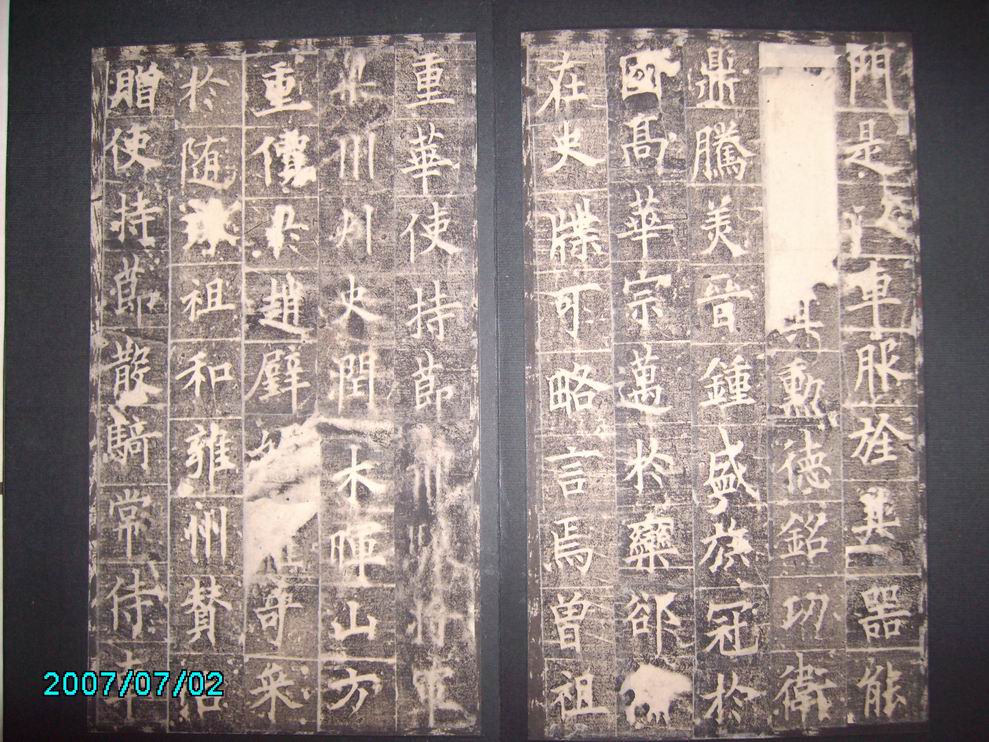 門是車服旌其器能
其勳德銘功衛
鼎騰美晉鍾盛族冠於
國高華宗邁於欒郤
在史牒可略言焉曾祖
重華使持節將軍
梁州刾史潤木暉山方
重價於趙璧奇采
於随珠祖和雍州贊治
贈使持節散騎常侍車
2007/07/02